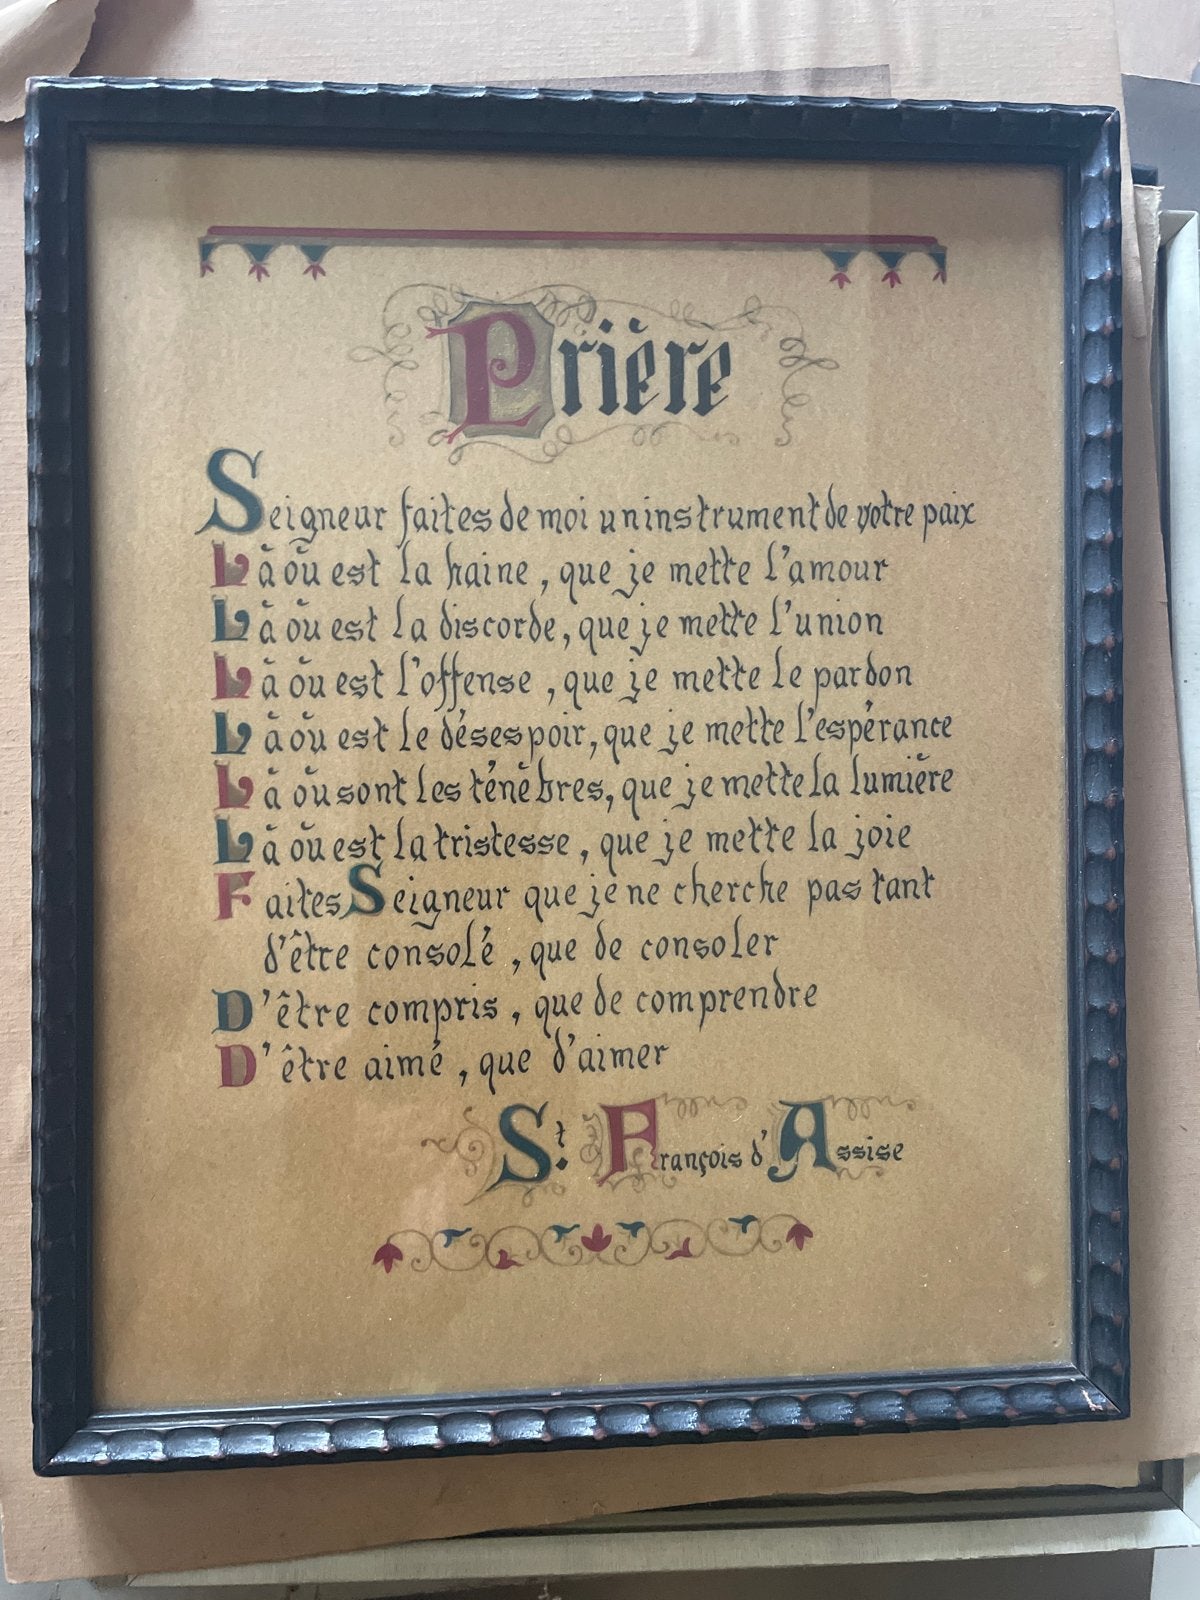 Prière
Seigneur faites de moi un instrument de votre paix
Là où est la haine, que je mette l'amour
Là où est la discorde, que je mette l'union
Là où est l'offense, que je mette le pardon
Là où est le désespoir, que je mette l'espérance
Là où sont les ténèbres, que je mette la lumière
Là où est la tristesse, que je mette la joie
Faites Seigneur que je ne cherche pas tant
d'être consolé, que de consoler
D'être compris, que de comprendre
D'être aimé, que d'aimer
St. François d'Assise